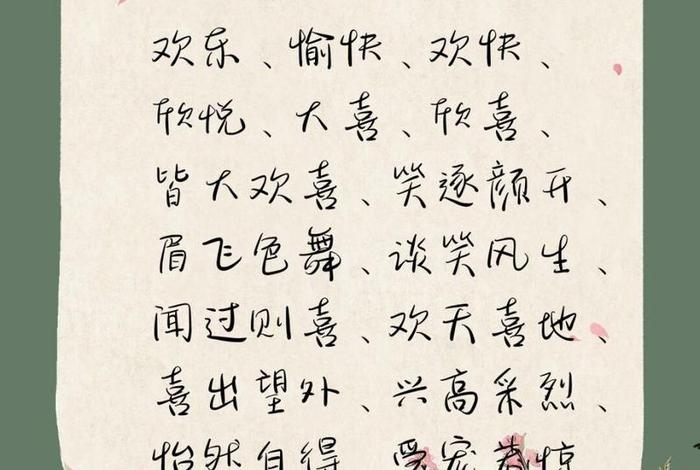 欢乐、愉快、欢快、
欣悦、大喜、欣喜、
皆大欢喜、笑逐颜开、
眉飞色舞、谈笑风生、
闻过则喜、欢天喜地、
喜出望外、兴高采烈、
怡然自得、受宠若惊